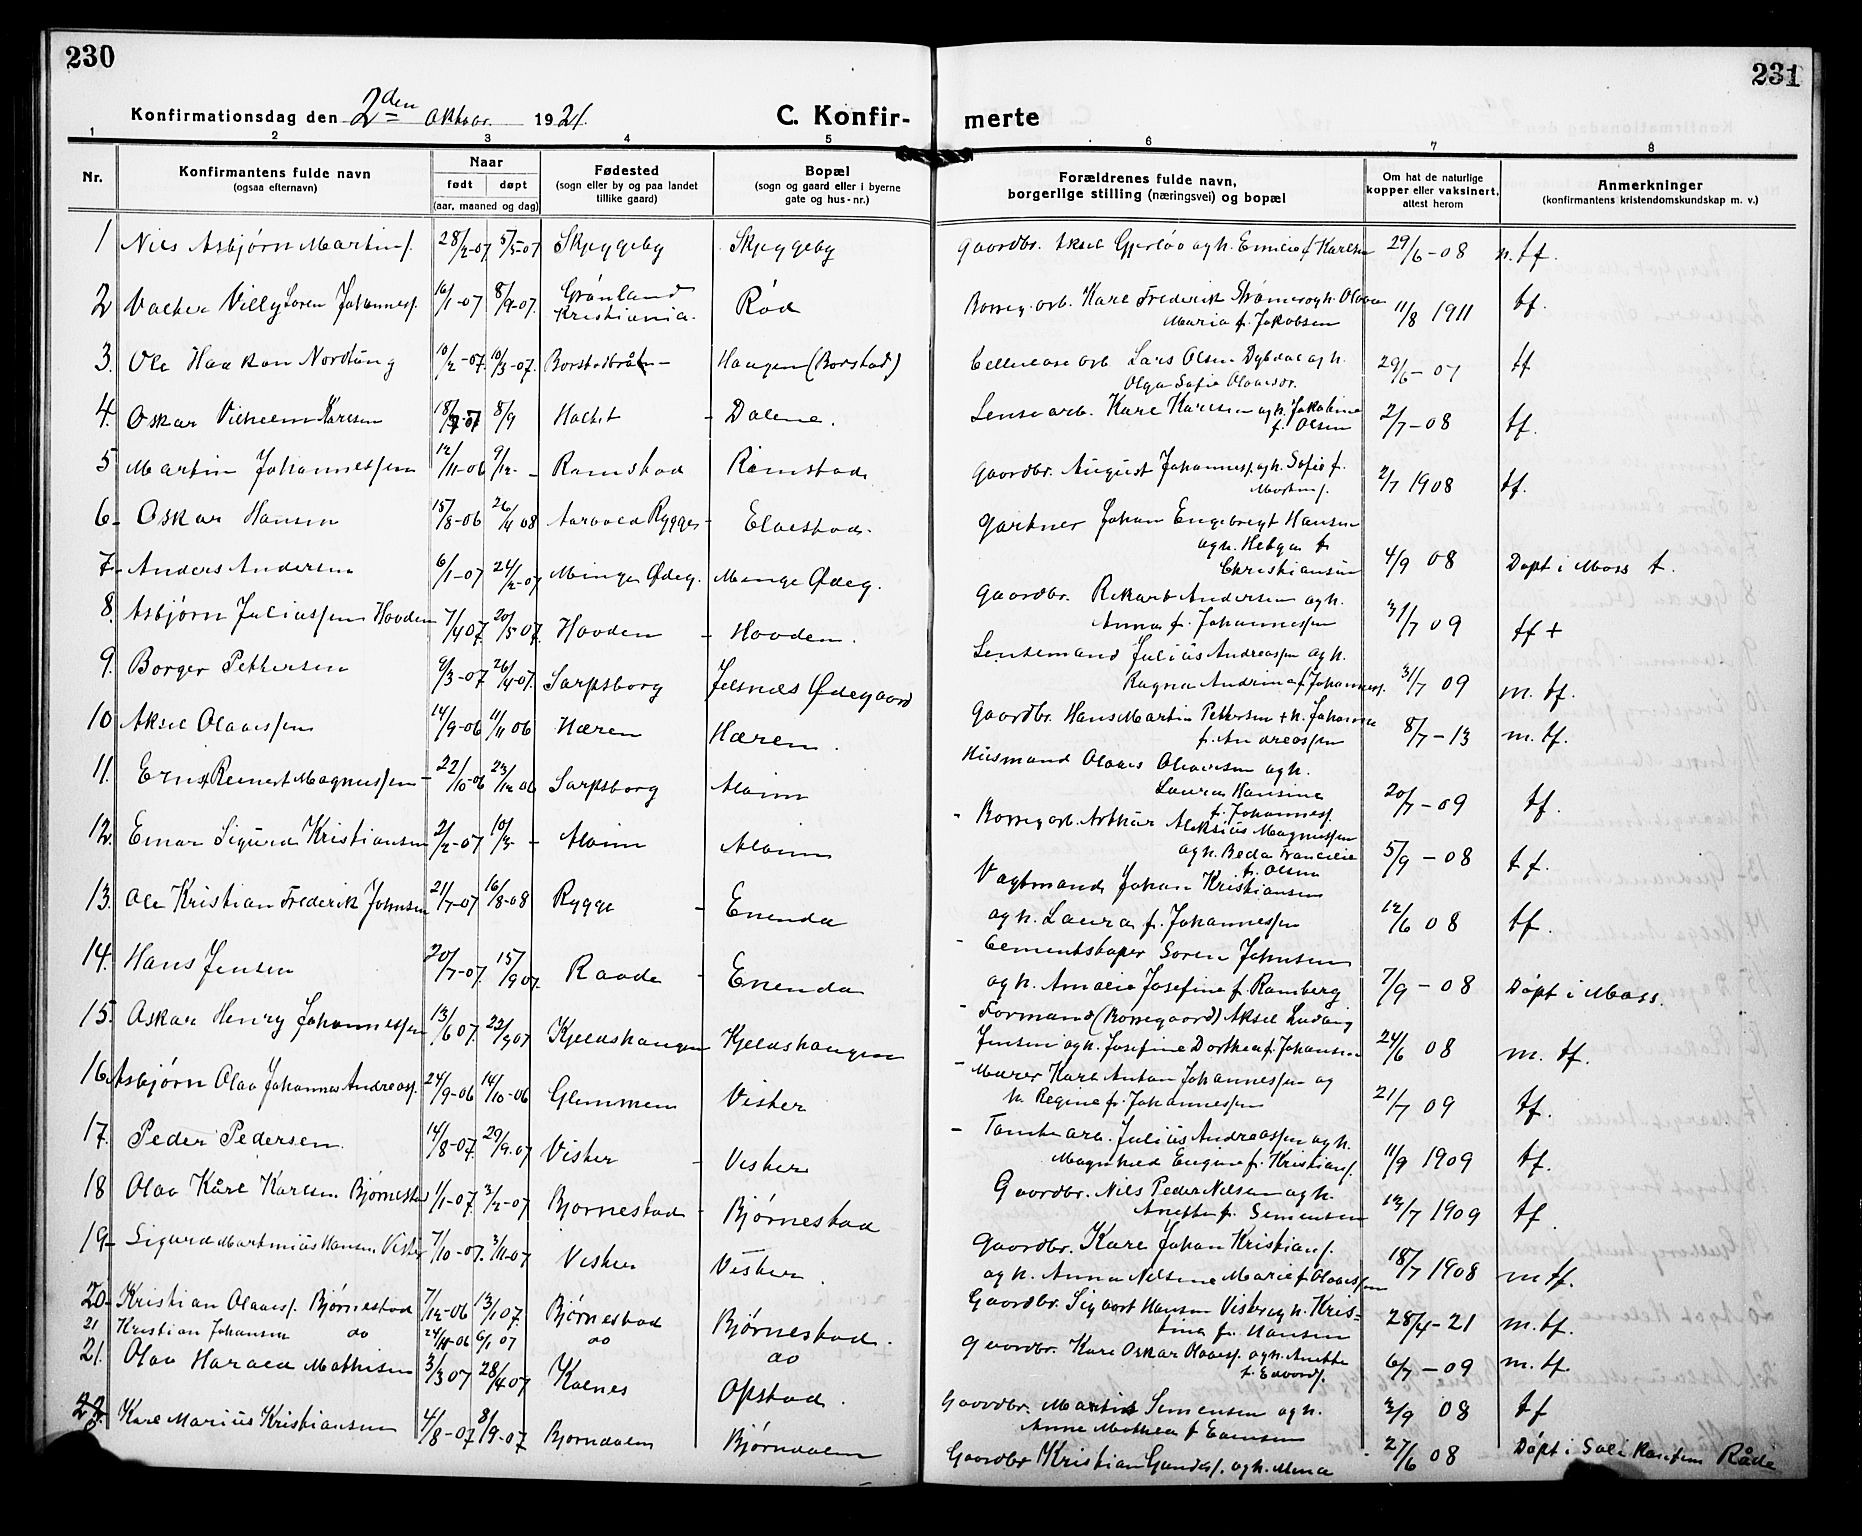 230
231
Konfirmationsdag den 2den Oktober 1921.
C. Konfirmerte
1 2 3 4 5 6 7 8
Nr.
Konfirmantens fulde navn
(ogsaa efternavn)
Naar
født døpt
(aar, maaned og dag)
Fødested
(sogn eller by og paa landet
tillike gaard)
Bopæl
(sogn og gaard eller i byerne
gate og hus-nr.)
Forældrenes fulde navn,
borgerlige stilling (næringsvei) og bopæl
Om hat de naturlige
kopper eller vaksinert,
attest herom
Anmerkninger
(konfirmantens kristendomskundskap m. v.)
1 Nils Asbjørn Martins. 28/2-07 5/5-07 Skjeggeby Skjeggeby Gaardbr. Aksel Gjerløv og h. Emilie f. Karlsen 29/6-08 n. tf.
2 Valter Villy Soren Johannes. 16/1-07 8/9-07. Grønland Kristiania. Rød Borreg. arb. Karl Frederik Strømer og h. Olava
Maria f. Jakobsen 11/8 1911 tf.
3. Ole Haakon Nordung 10/2-07. 10/3-07. Haugen (Borstad) Cellulose arb Lars Olsen Dybdal og h.
Olga Sofie Olavesdr. 29/6-07 tf
4. Oskar Vilhelm Karlsen 8/9 - Dalene. Lense arb. Karl Karlsen og h. Jakobine
f. Olsen 2/7-08 tf.
5 Martin Johannessen 12/11-06 9/12- Ramstad Ramstad Gaardbr. August Johannes. og h. Sofie f.
Martins. 2/7 1908 tf.
6- Oskar Hansen 15/8-06 26/4 08 Rygge - Elvestad. Gartner Johan Engebregt Hansen
og h. Helga f.
Christiansen 4/9 08 Døpt i Moss t.
7- Anders Andersen 6/1-07 24/2-07 Minge Ødeg. Minge Ødeg. Gaardbr. Rikard Andersen og h.
Anna f. Johannessen 31/7 09 tf +
8. Asbjørn Juliussen Hovden 7/4 07. 20/5 07. Hovden - Hovden. Lensemand Julius Andreassen og h.
Ragna Andrina f. Johannes. 31/7 09 m. tf.
9. Borger Pettersen 9/3-07 26/4-07. Sarpsborg Jelsnes Ødegaard Gaardbr. Hans Martin Pettersen + h. Johanne
f. Andreassen 8/7-13 m. tf.
10 Aksel Olavessen 14/9-06 11/11 06 Hæren Hæren. Husmand Olaves Olavesen og h.
Laura Hansine
f. Johannes. 20/7-09 tf.
11. Ernst Reinert Magnussen - 22/10-06 23/12-06 Sarpsborg Alvim - Borreg arb. Arthur Aleksius Magnussen
og h. Beda Francilie
f. Olsen 5/9-08 tf.
12. Einar Sigurd Kristiansen 2/2-07 10/3- - Alvim Alvim Vagtmand Johan Kristiansen
og h. Laura f. Johannessen 12/6 08 tf.
13. Ole Kristian Frederik Johnsen 21/7-07 16/8-08 Rygge - Enenda - Cementstøper Soren Johnsen
og h. Amalie Josefine f. Ramberg 7/9-08 Døpt i Moss.
14. Hans Jensen 20/7-07. 15/9 07. Raade - Enenda - Formand (Borregaard) Aksel Ludvig
Jensen og h. Josefine Dorthea f. Johansen 24/6 08 m. tf.
15. Oskar Henry Johannessen 13/6 07. 22/9 07 Kjeldshaugen Kjeldshaugen - Murer Karl Anton Johannessen og
h. Regine f. Johannessen 21/7 09 tf.
16. Asbjørn Olav Johannes Andreass. 24/9-06 14/10-06 Glemmen Visker - Tomtearb. Julius Andreassen og h.
Magnhild Eugine f. Kristians. 11/9 1909 tf.
17. Peder Pedersen 14/8-07. 29/9-07 Visker - Visker Gaardbr. Nils Peder Nilsen og h.
Anette f. Simensen 12/7 1909 tf
18 Olav Kåre Karlsen Bjørnestad 1/1-07. 3/2-07 Bjornestad - Bjørnestad Gaardbr. Karl Johan Kristians.
og h. Anna Nilsine Marie f. Olavessen 18/7 1908 m tf.
19- Sigurd Martinius Hansen Visker 7/10-07. 3/11-07 Visker Visker. Gaardbr. Sigvart Hansen Visker og h. Kris-
tina f. Hansen 28/4-21 m. tf.
20- Kristian Olaves. Bjørnestad 7/12-06 13/1 07. Bjørnestad Bjørnestad. Gaardbr. Karl Oskar Olaves. og h. Anette
f. Edvards. 6/7-09 m. tf.
21 Kristian Johansen do 6/1 07 do do
21. Olav Harald Mathisen 3/3 07 28/4 07 Kalnes Opstad. Gaardbr. Martin Simensen og h.
Anne Mathea f. 3/9 08 tf
22. Karl Marius Kristiansen 4/8-07 8/9-07 Bjorndalen Bjørndalen Gaardbr Kristian Gundes. og h. Mina 27/6 08 Døpt i Råde